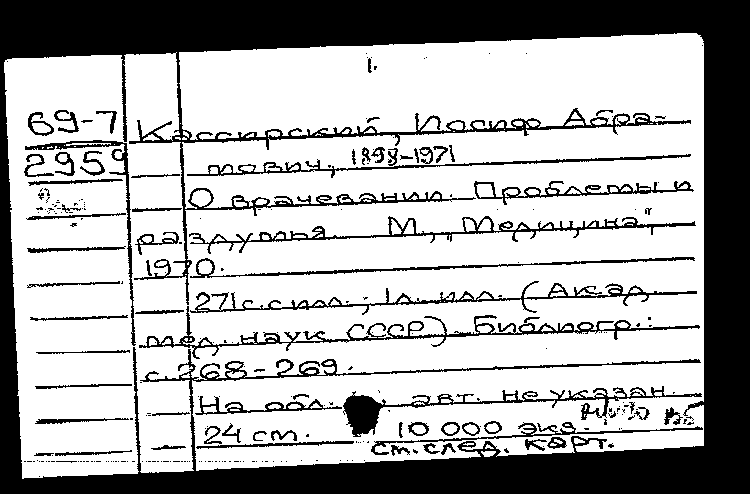 1.
69-7 Кассирский, Иосиф Абра-
2959 мович, 1898-1971
О врачевании. Проблемы и
раздумья. М., „Медицина",
1970.
271 с. с илл.; 1 л. илл. (Акад.
мед. наук СССР). Библиогр.:
с. 268-269.
На обл. авт. не указан.
24 см. 10 000 экз.
см. след. карт.